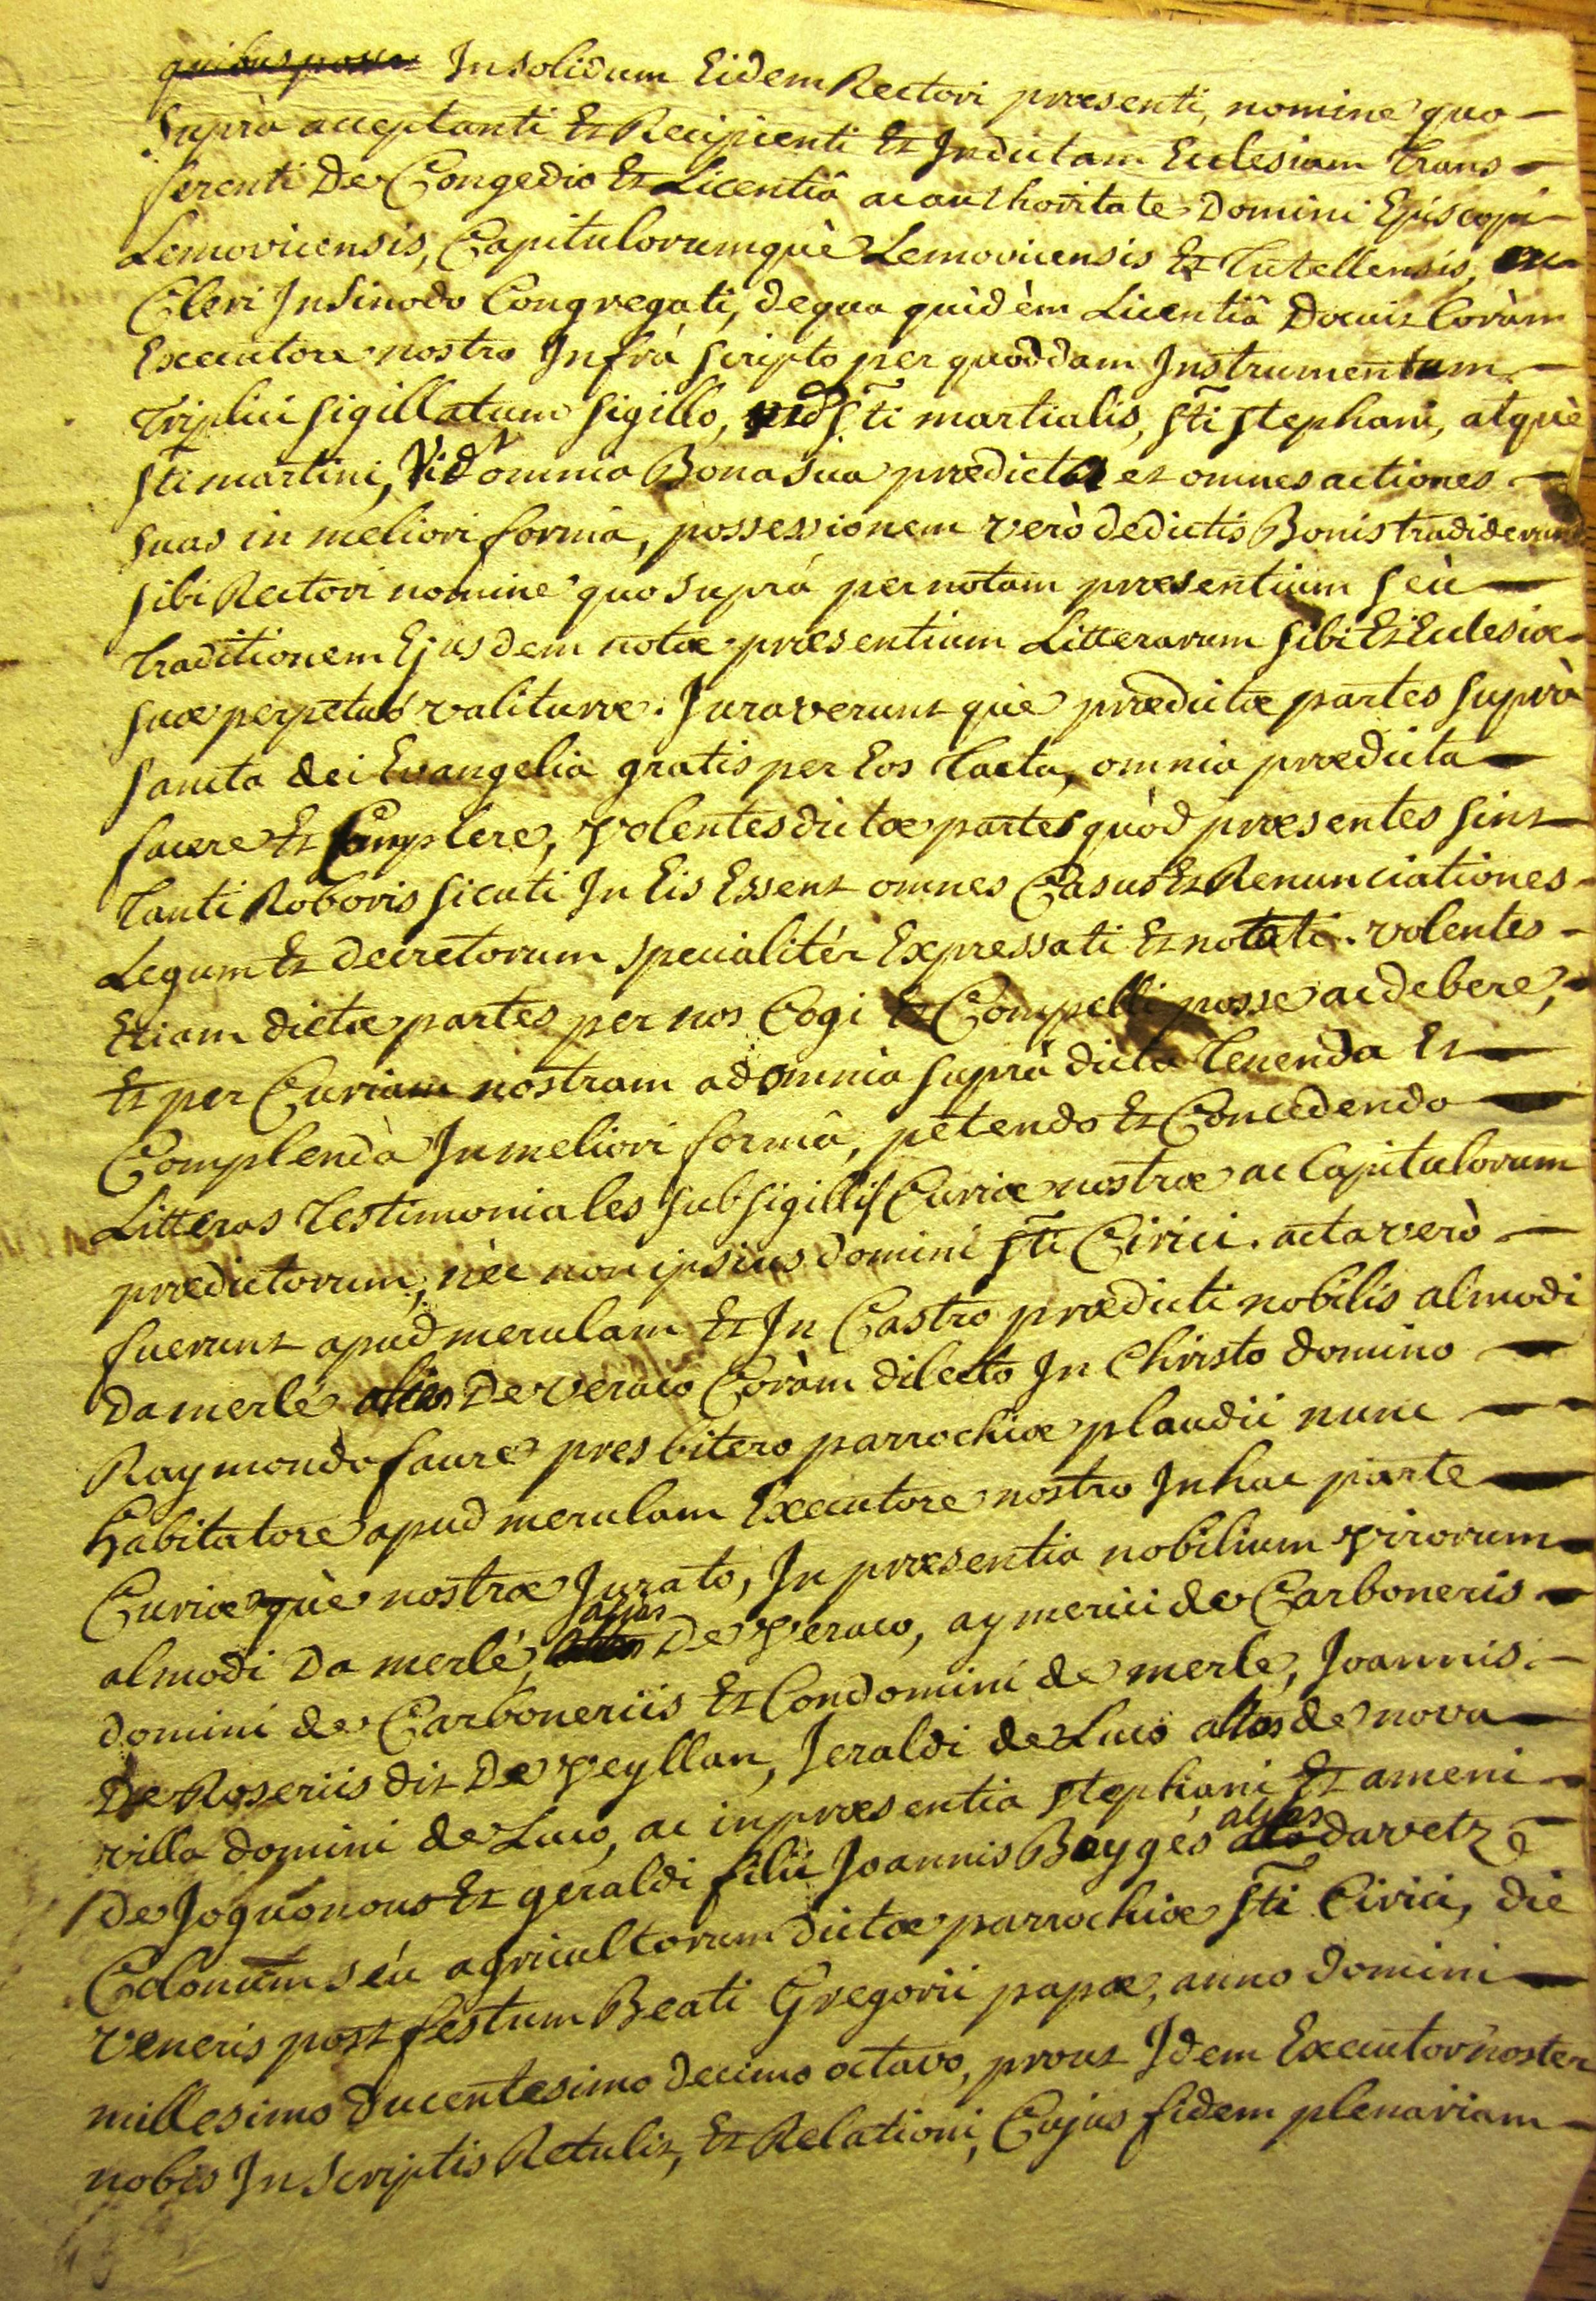 Insolidum Eidem Rectori præsenti, nomine quo
suprà acceptanti Et Recipienti Et Indictam Ecclesiam trans
ferenti De Congedio Et Licentiâ ac authoritate Domini Episcopi
Lemovicensis, Capitulorumquè Lemovicensis Et Tutellensis, ac
Cleri Insinodo Congregati, dequa quidèm Licentiâ Docuit Coràm
Executore nostro Infrà scripto per quoddam Instrumentum
Triplici sigillatum sigillo, sti martialis, sti stephani, atquè
sti martini, omnia Bona sua prædicta et omnes actiones
suas in meliori formâ, possessionem verò dedictis Bonis tradiderunt
sibi Rectori nomine quo suprà per notam præsentium seù
traditionem Ejusdem notæ præsentium Litterarum sibi Et Ecclesiæ
suæ perpetuò valituræ. Juraverunt què prædictæ partes suprà
sancta dei Evangelia gratis per Eos tacta, omnia prædicta
facere Et Complere, Volentes dictæ partes quòd præsentes sint
tanti Roboris sicuti In Eis Essent omnes Casus Et Renunciationes
Legum Et decretorum specialitér Expressati Et notati. volentes
Etiam dictæ partes per nos Cogi Et Compelli posse ac debere,
Et per Curiam nostram ad omnia suprà dicta tenenda Et
Complendà In meliori formâ, petendo Et Concedendo
Litteras testimoniales sub sigillis Curiæ nostræ ac Capitulorum
prædictorum, nèc non ipsius domini sti Cirici. acta verò
fuerunt apud merulam Et In Castro prædicti nobilis almodi
Damerlé alias De veraco Coràm dilecto In Christo domino
Raymondo faure presbitero parrochiæ plaudii nunc
habitatore apud merulam Executore nostro In hac parte
Curiæquè nostræ Jurato, In præsentia nobilium virorum
almodi Da merlé, alias De Veraco, aymerici de Carboneris
domini de Carboneriis Et Condomini de merle, Joannis
De Roseriis dit De Veyllan, Jeraldi de Luco alias de nova
villa domini de Luco, ac in præsentia stephani Et ameni
De Joquonous Et geraldi filii Joannis Beyges alias davetz
Colonum séu agricultorum dictæ parrochiæ sti Cirici, die
veneris post festum Beati Gregorii papæ, anno domini
millesimo ducentesimo decimo octavo, prout Idem Executor noster
nobis In scriptis Retulit, Et Relationi, Cujus fidem plenariam